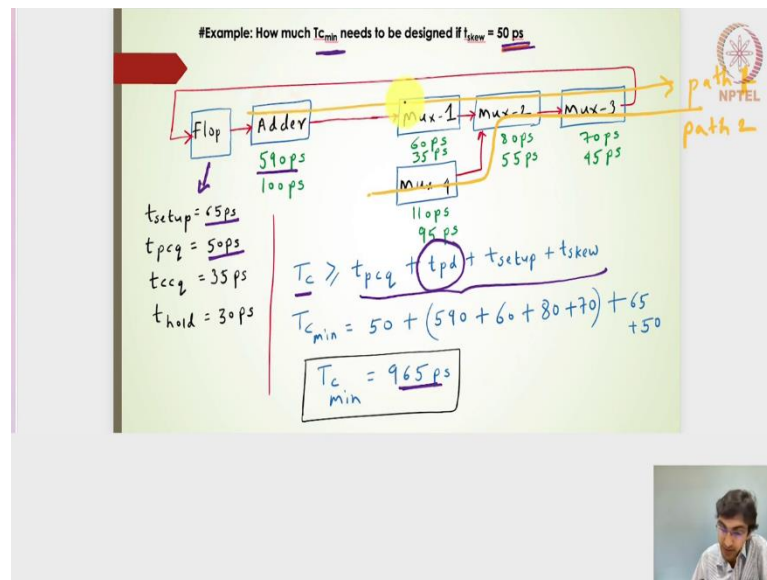 #Example: How much Tcmin needs to be designed if tskew = 50 ps
NPTEL
path 1
path 2
Flop
Adder
Mux-1
Mux-2
Mux-3
590ps
100ps
60ps
35ps
80ps
55ps
70ps
45ps
Mux-4
110ps
95ps
tsetup = 65ps
tpcq = 50ps
tccq = 35 ps
thold = 30ps
Tc ≥ tpcq + tpd + tsetup + tskew
Tcmin = 50 + (590 + 60 + 80 + 70) + 65
+50
Tcmin = 965ps